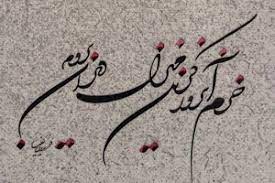 خرم آنروز کزین منزل ویران بروم